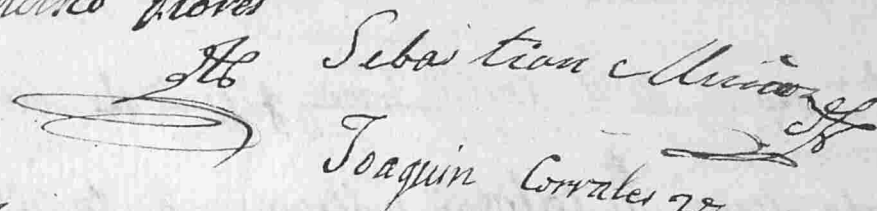 Flores
Sebastian Muñoz
Joaquin Corrales